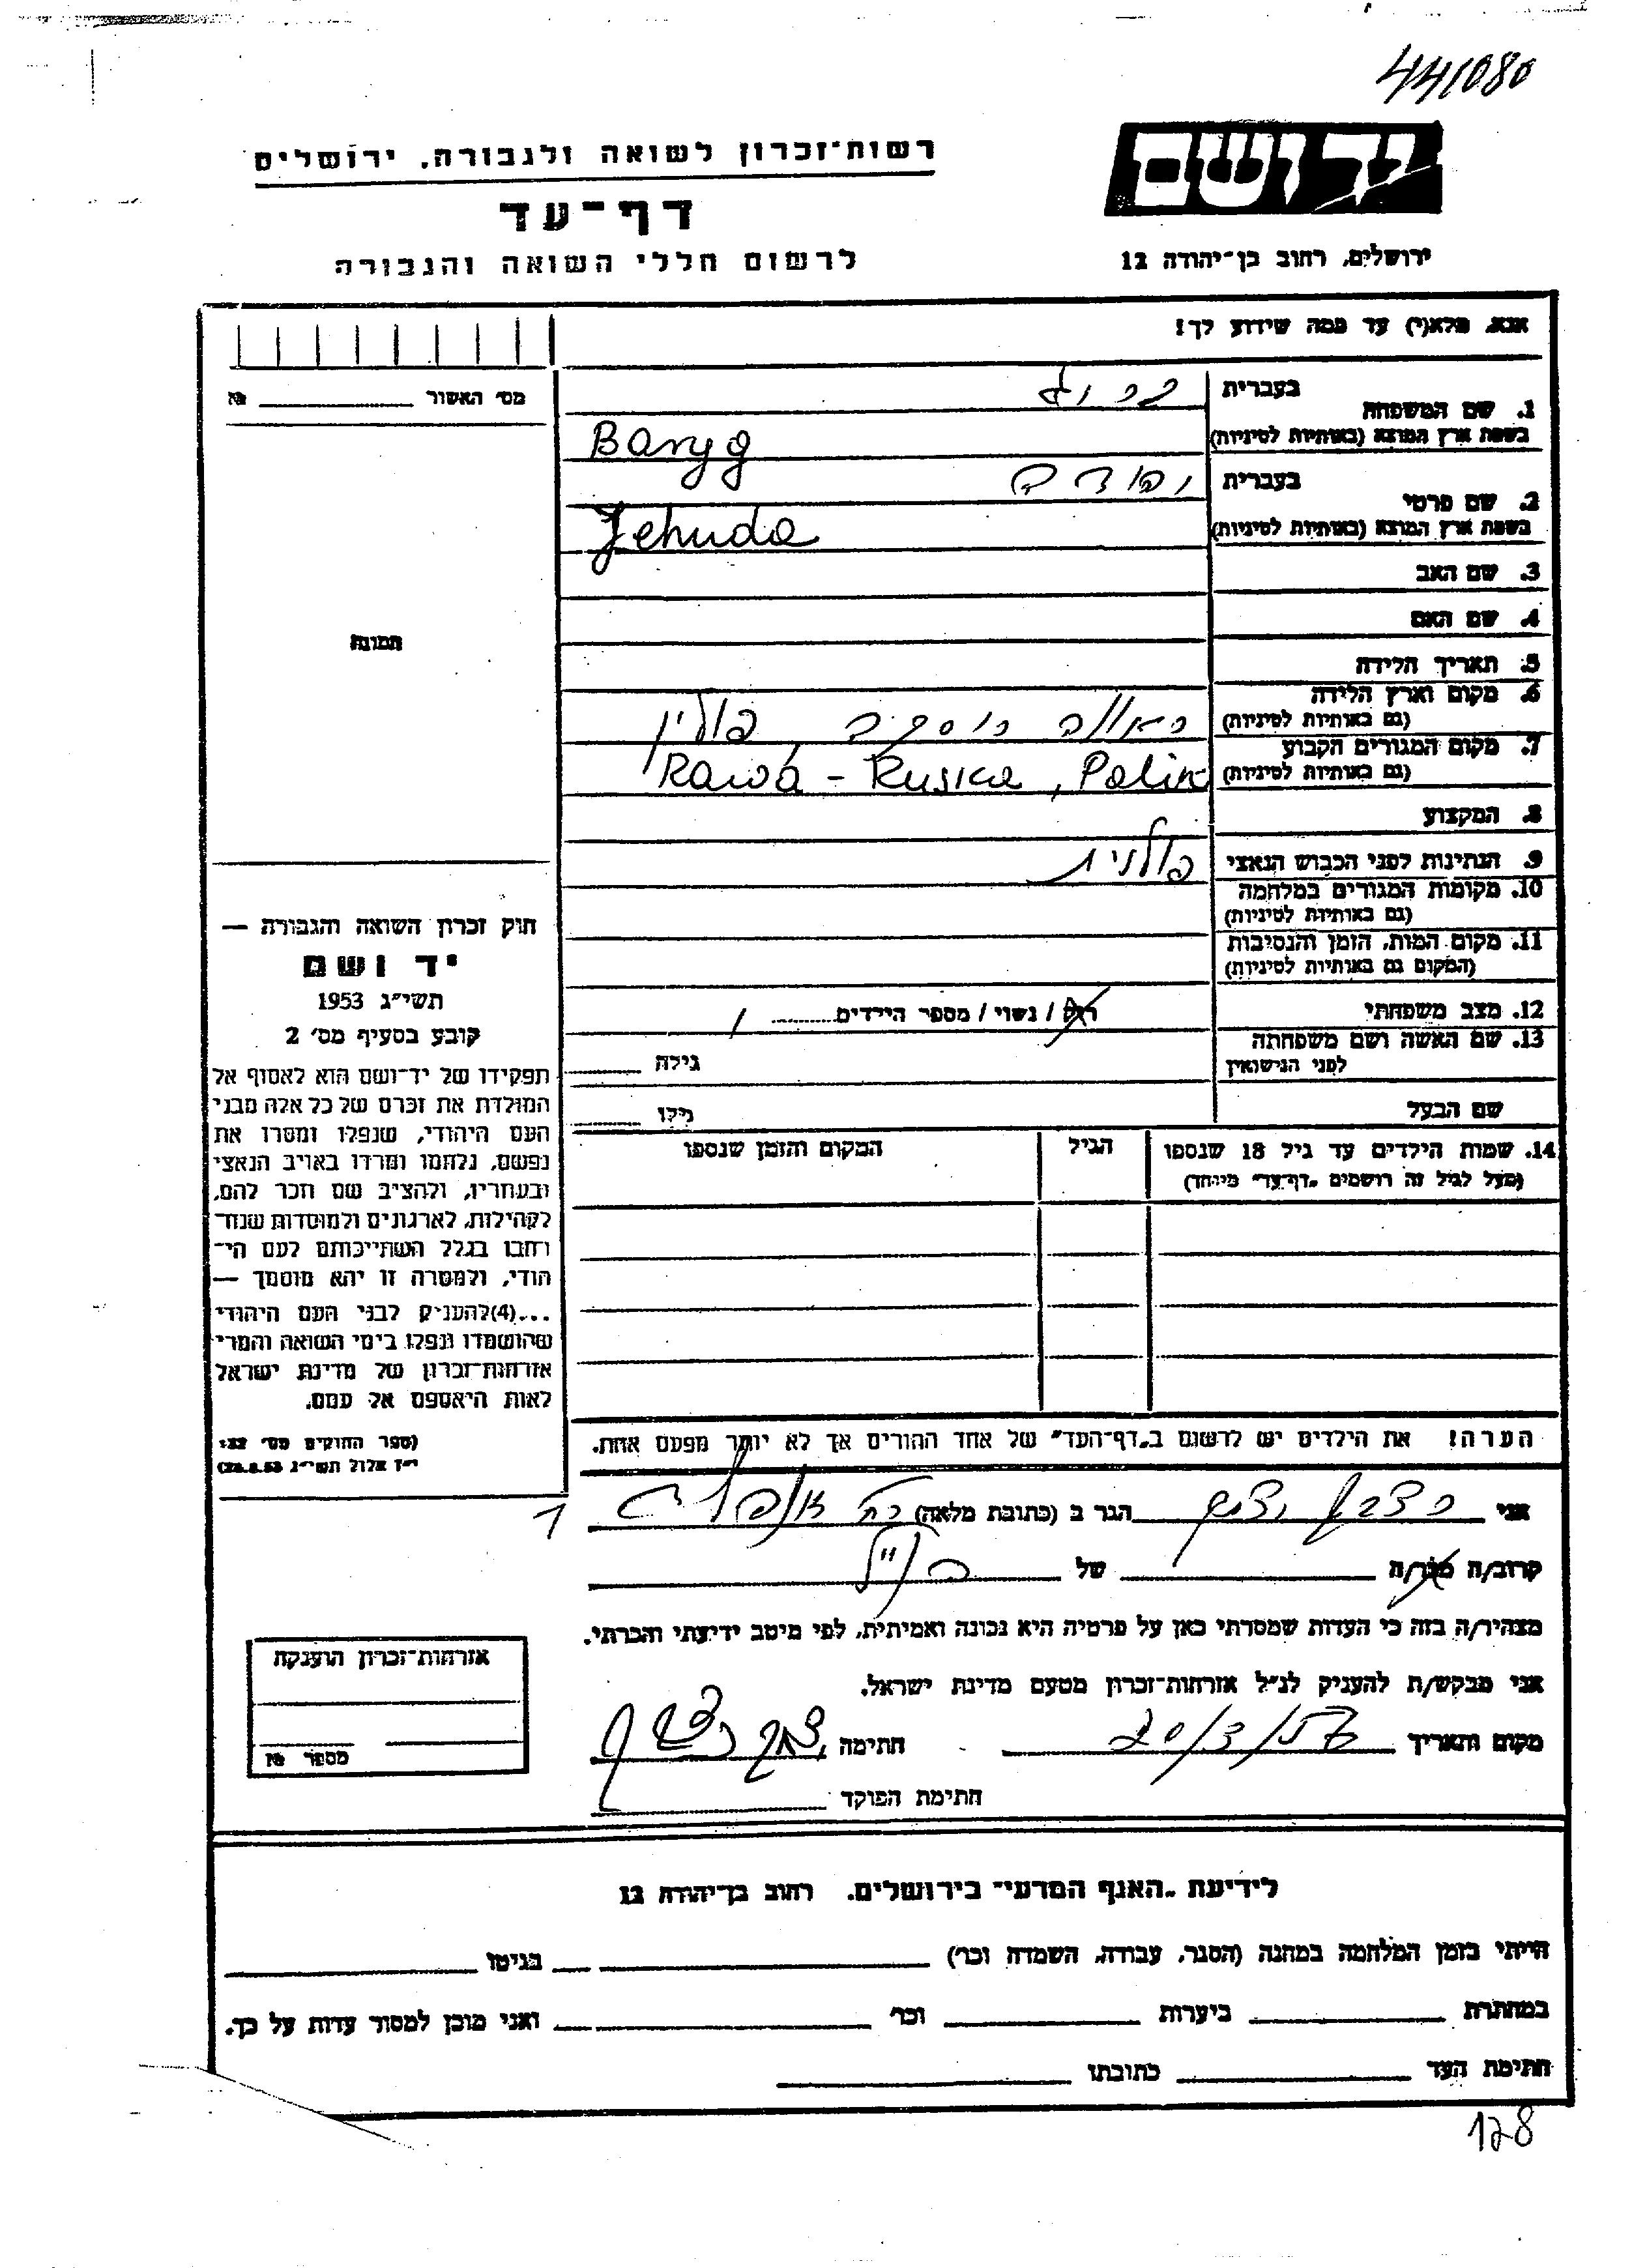 441080
רשות־זכרון לשואה ולגבורה, ירושלים
יד ושם
דף־עד
לרשום חללי השואה והגבורה
ירושלים, רחוב בן־יהודה 12
אנא, מלא(י) עד כמה שידוע לך!
מס׳ האשור
1. שם המשפחה
בעברית
בשפת ארץ המוצא (באותיות לטיניות)
Baryg
2. שם פרטי
בעברית יהודה
בשפת ארץ המוצא (באותיות לטיניות)
Jehuda
3. שם האב
4. שם האם
תמונה
5. תאריך הלידה
6. מקום וארץ הלידה
(גם באותיות לטיניות)
ראווה רוסקה פולין
7. מקום המגורים הקבוע
(גם באותיות לטיניות)
Rawa - Ruska, Polin
8. המקצוע
9. הנתינות לפני הכבוש הנאצי פולנית
10. מקומות המגורים במלחמה
(גם באותיות לטיניות)
11. מקום המות, הזמן והנסיבות
(המקום גם באותיות לטיניות)
12. מצב משפחתי
רווק / נשוי / מספר הילדים
13. שם האשה ושם משפחתה
לפני הנישואין
גילה
שם הבעל
גילו
14. שמות הילדים עד גיל 18 שנספו
(מעל לגיל זה רושמים „דף־עד״ מיוחד)
הגיל
המקום והזמן שנספו
חוק זכרון השואה והגבורה —
יד ושם
תשי״ג 1953
קובע בסעיף מס׳ 2
תפקידו של יד־ושם הוא לאסוף אל
המולדת את זכרם של כל אלה מבני
העם היהודי, שנפלו ומסרו את
נפשם, נלחמו ומרדו באויב הנאצי
ובעוזריו, ולהציב שם וזכר להם,
לקהילות, לארגונים ולמוסדות שנח־
רבו בגלל השתייכותם לעם הי־
הודי, ולמטרה זו יהא מוסמך —
...(4)להעניק לבני העם היהודי
שהושמדו ונפלו בימי השואה והמרי
אזרחות־זכרון של מדינת ישראל
לאות היאספם אל עמם.
(ספר החוקים מס׳ 132
י״ז אלול תשי״ג 28.8.53)
הערה! את הילדים יש לרשום ב„דף־העד״ של אחד ההורים אך לא יותר מפעם אחת.
אני
הגר ב (כתובת מלאה)
קרוב/ה מכר/ה
של
מצהיר/ה בזה כי העדות שמסרתי כאן על פרטיה היא נכונה ואמיתית, לפי מיטב ידיעתי והכרתי.
אני מבקש/ת להעניק לנ״ל אזרחות־זכרון מטעם מדינת ישראל.
מקום ותאריך
חתימה
חתימת הפוקד
אזרחות־זכרון הוענקה
מספר
לידיעת „האגף המדעי״ בירושלים, רחוב בן־יהודה 12
הייתי בזמן המלחמה במחנה (הסגר, עבודה, השמדה וכו׳)
בגיטו
במחתרת
ביערות
וכו׳
ואני מוכן למסור עדות על כך.
חתימת העד
כתובתו
128